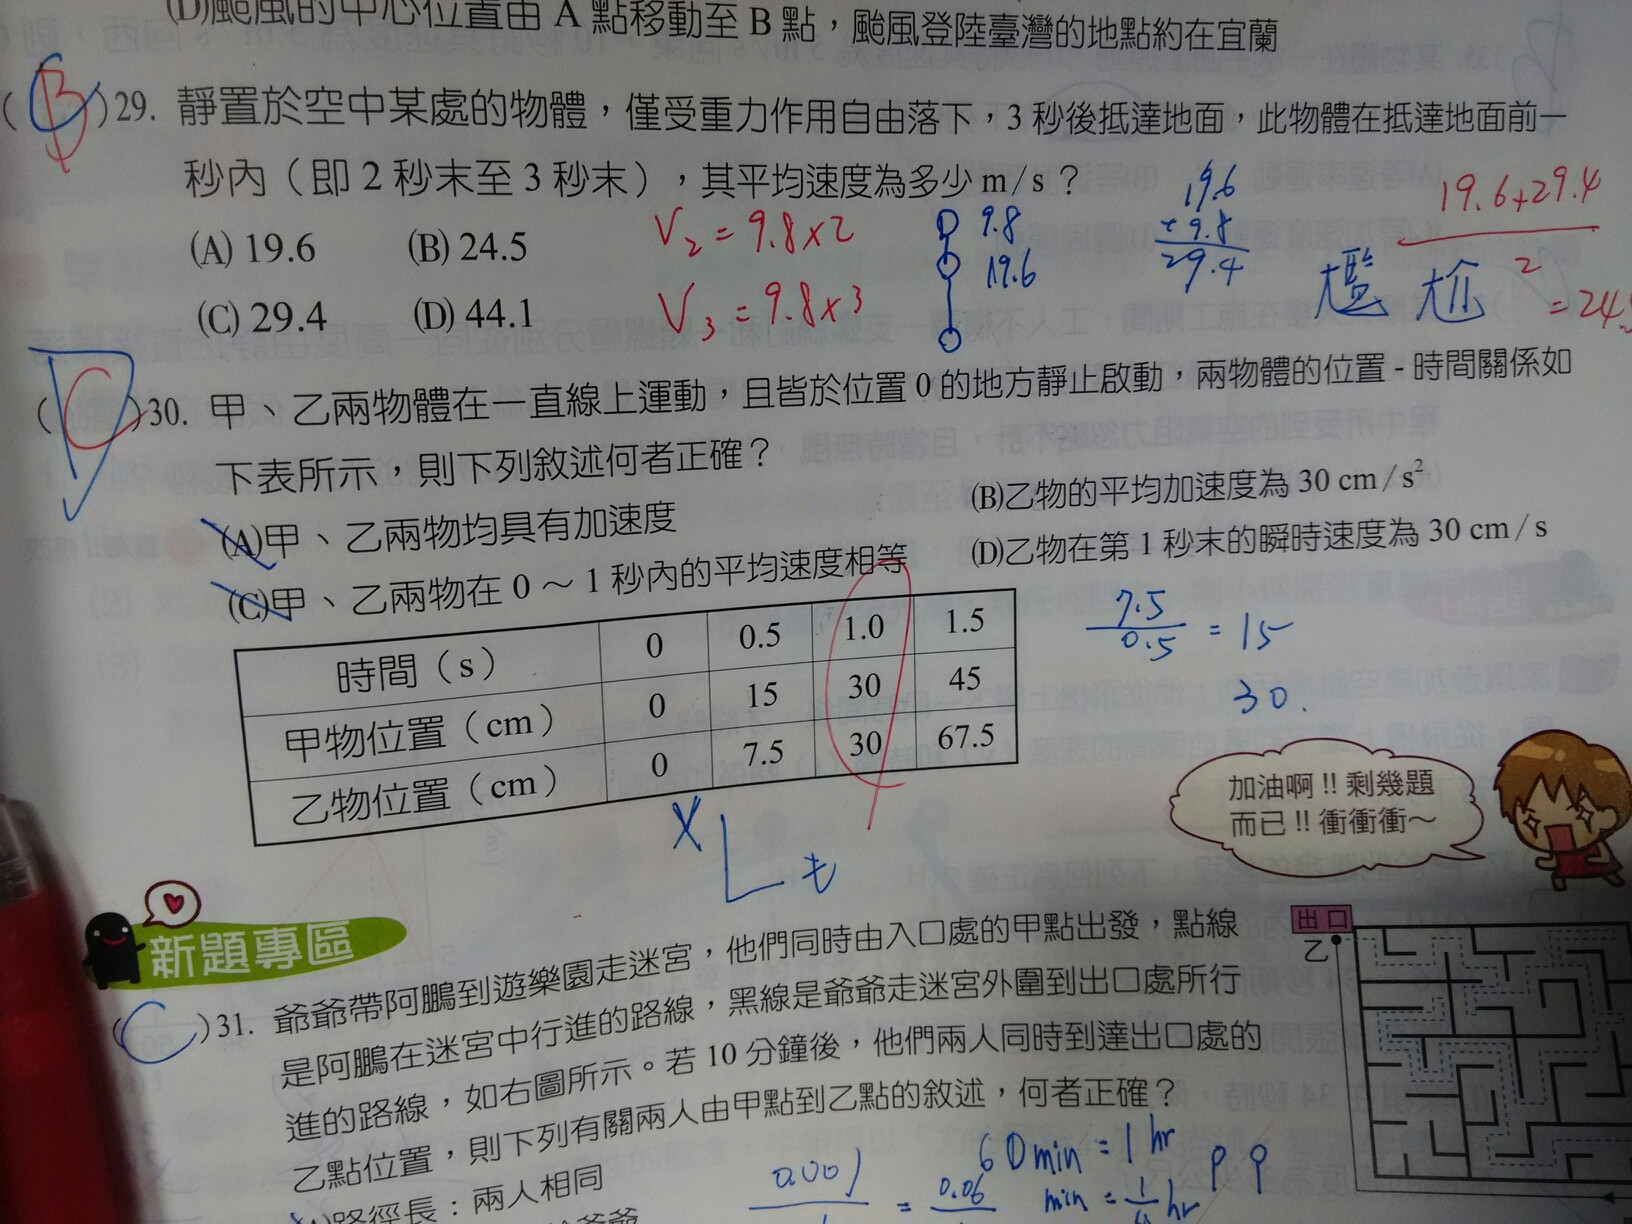 (D)颱風的中心位置由 A 點移動至 B 點，颱風登陸臺灣的地點約在宜蘭
( B )29. 靜置於空中某處的物體，僅受重力作用自由落下，3 秒後抵達地面，此物體在抵達地面前一
秒內（即 2 秒末至 3 秒末），其平均速度為多少 m/s？
(A) 19.6 (B) 24.5
(C) 29.4 (D) 44.1
V₂ = 9.8×2
V₃ = 9.8×3
9.8
19.6
19.6
+9.8
29.4
19.6+29.4
2
=24.5
尷尬
( C )30. 甲、乙兩物體在一直線上運動，且皆於位置 0 的地方靜止啟動，兩物體的位置 - 時間關係如
下表所示，則下列敘述何者正確？
(A)甲、乙兩物均具有加速度 (B)乙物的平均加速度為 30 cm/s²
(C)甲、乙兩物在 0～1 秒內的平均速度相等 (D)乙物在第 1 秒末的瞬時速度為 30 cm/s
時間（s） 0 0.5 1.0 1.5
甲物位置（cm） 0 15 30 45
乙物位置（cm） 0 7.5 30 67.5
7.5
0.5 = 15
30.
X
t
加油啊 !! 剩幾題
而已 !! 衝衝衝～
新題專區
( C )31. 爺爺帶阿鵬到遊樂園走迷宮，他們同時由入口處的甲點出發，點線
是阿鵬在迷宮中行進的路線，黑線是爺爺走迷宮外圍到出口處所行
進的路線，如右圖所示。若 10 分鐘後，他們兩人同時到達出口處的
乙點位置，則下列有關兩人由甲點到乙點的敘述，何者正確？
路徑長：兩人相同
出口
乙
60min = 1hr
0.001
= 0.06
min =
hr